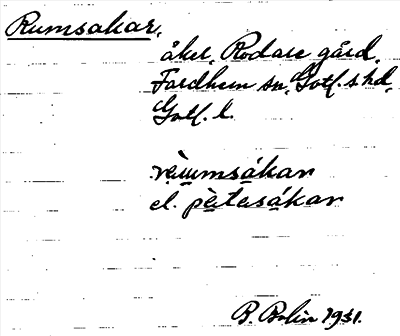 Rumsakar,
åker, Rodare gård,
Fardhem sn, Gotl. s hd,
Gotl. l.
rèumsákar
el. pèitasákar
B. Bolin 1931.